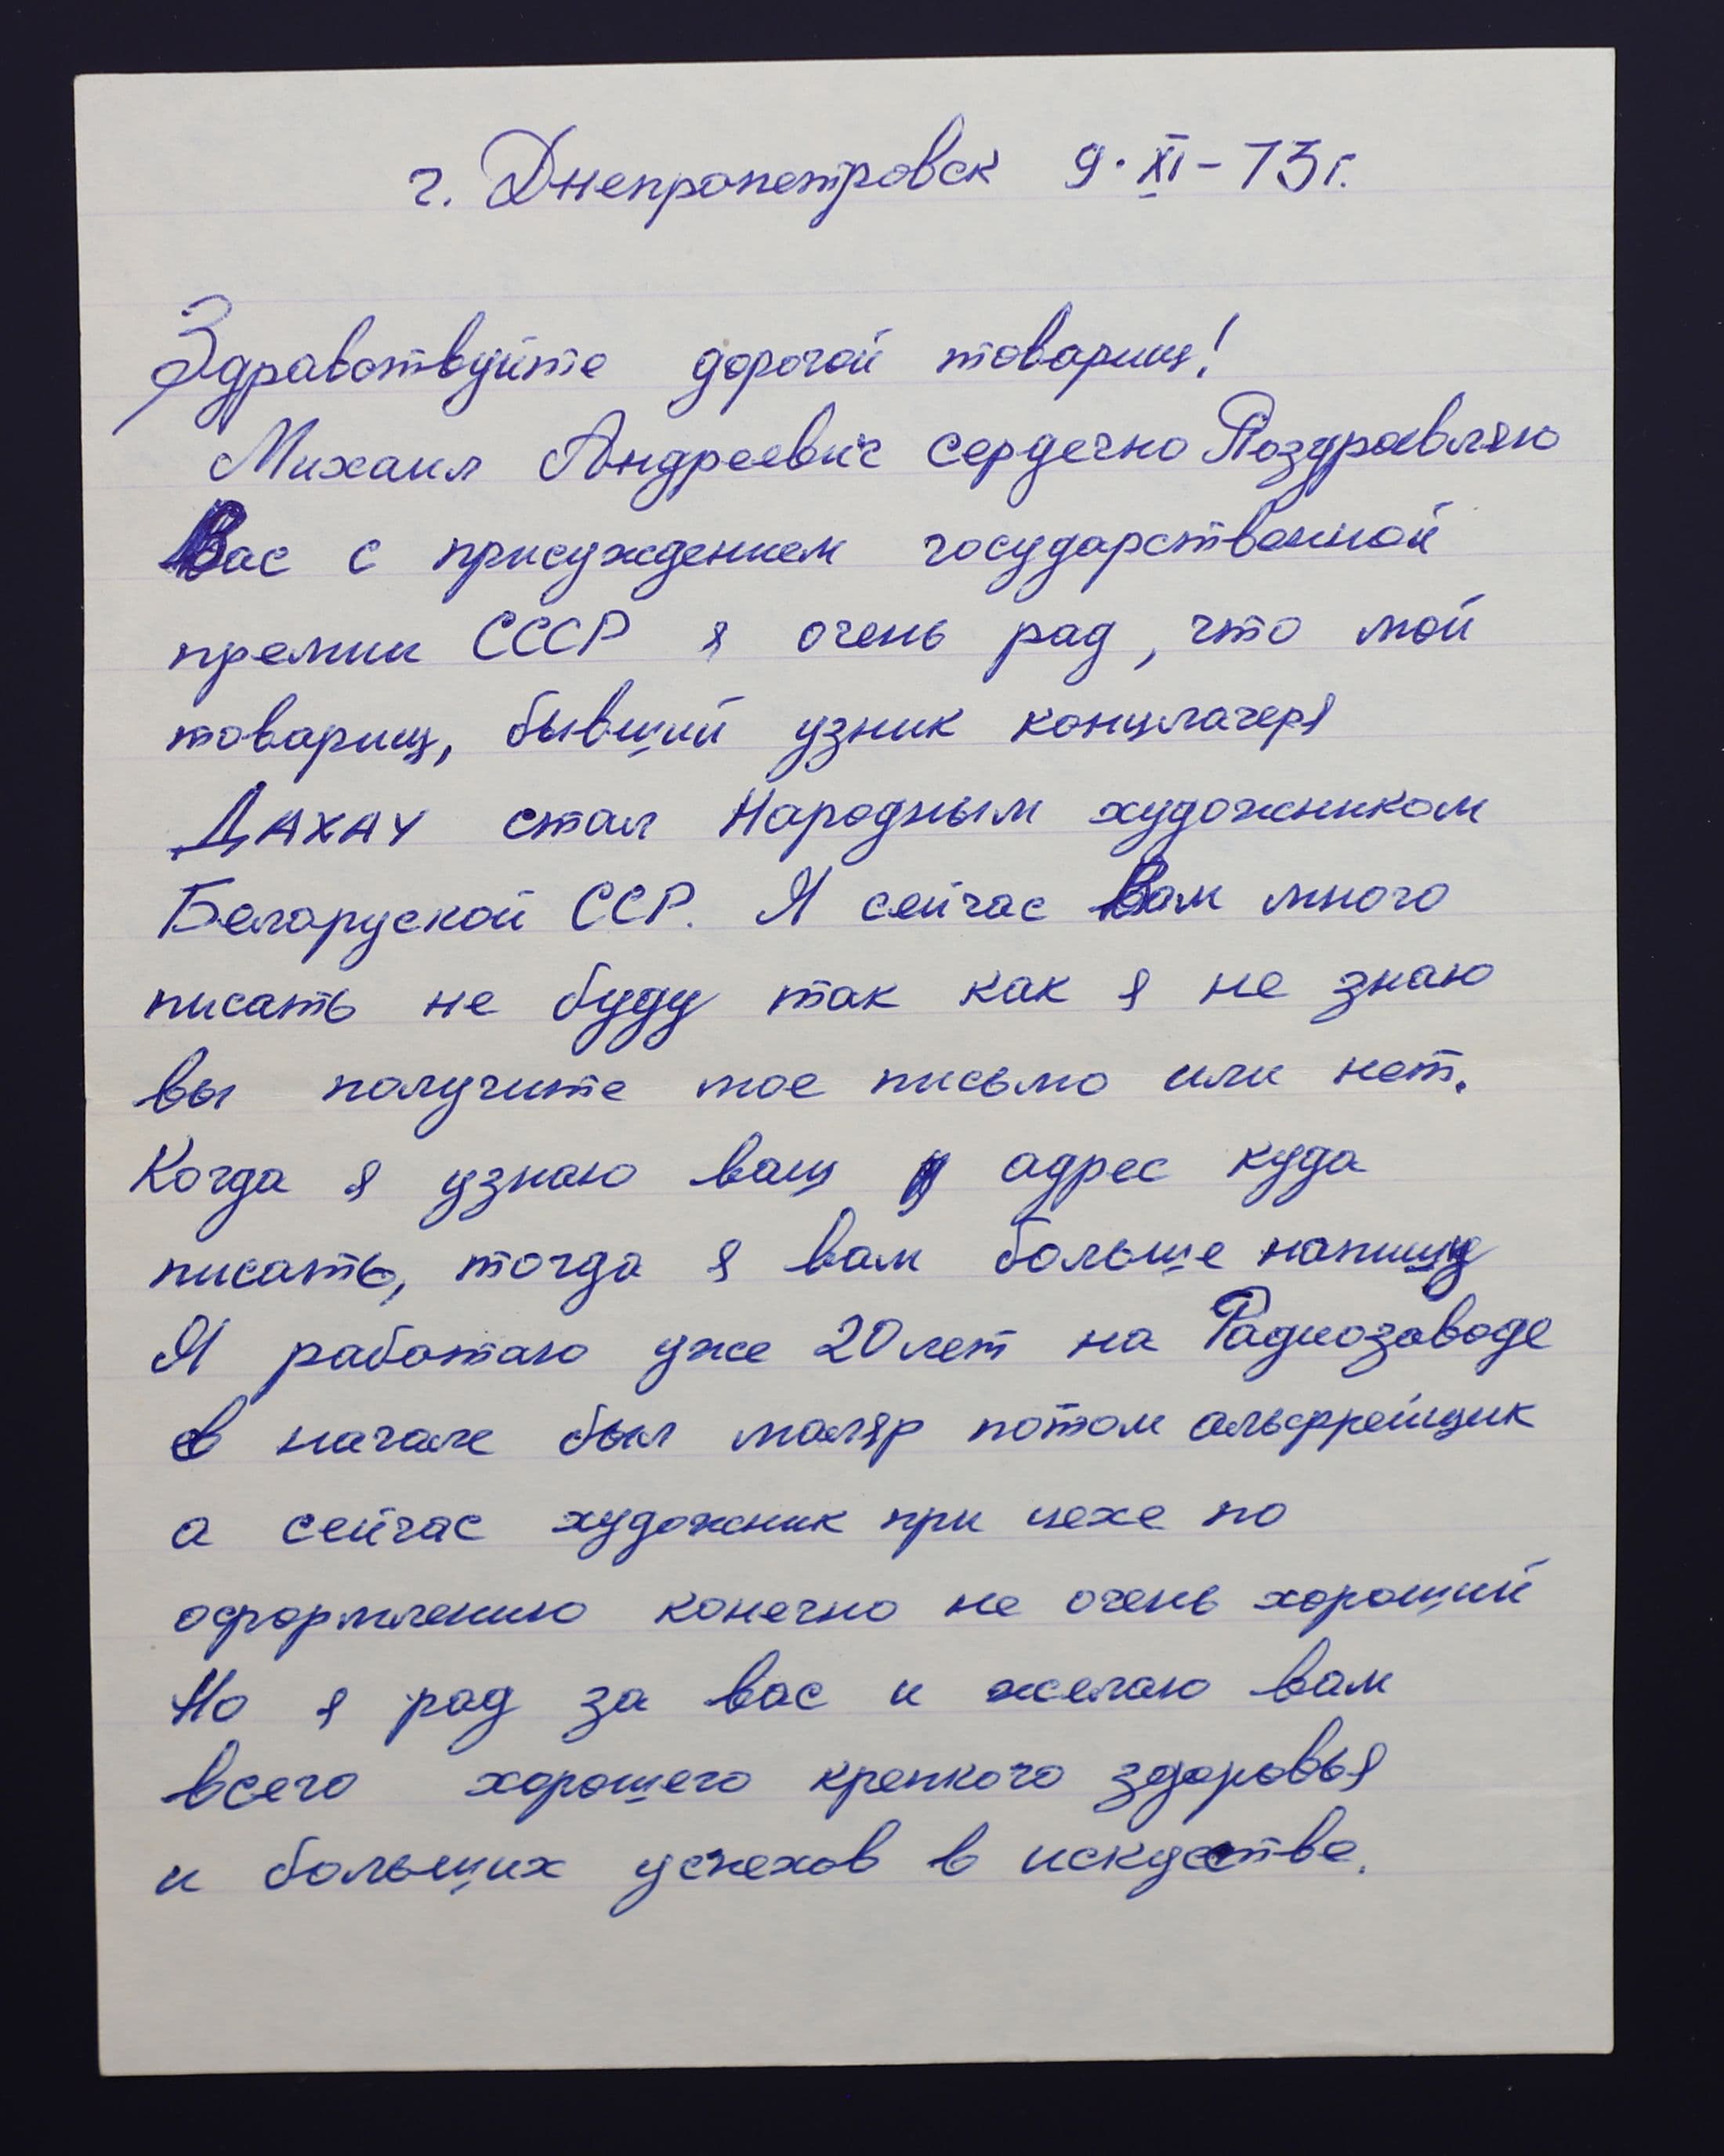 г. Днепропетровск 9·XI-73г.
Здравствуйте дорогой товарищ!
Михаил Андреевич сердечно Поздравляю
Вас с присуждением государственной
премии СССР я очень рад, что мой
товарищ, бывший узник концлагеря
ДАХАУ стал Народным художником
Белоруской ССР. Я сейчас Вам много
писать не буду так как я не знаю
вы получите мое письмо или нет.
Когда я узнаю ваш адрес куда
писать, тогда я вам больше напишу
Я работаю уже 20 лет на Радиозаводе
в начале был маляр потом альфрейщик
а сейчас художник при цехе по
оформлению конечно не очень хороший
Но я рад за вас и желаю вам
всего хорошего крепкого здоровья
и больших успехов в искусстве.